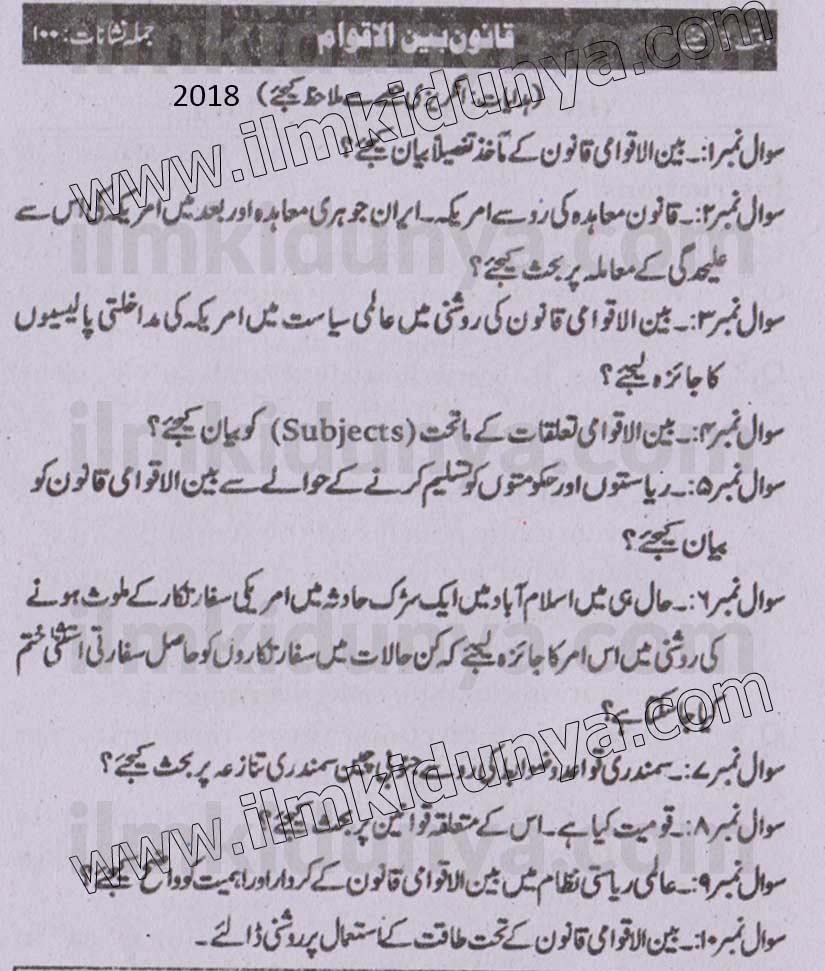 قانون بین الاقوام جملہ نشانات: ۱۰۰
(ہدایات: انگریزی سے ملاحظہ کیجئے) 2018
سوال نمبر۱:۔ بین الاقوامی قانون کے مآخذ تفصیلاً بیان کیجئے؟
سوال نمبر۲:۔ قانون معاہدہ کی رو سے امریکہ۔ ایران جوہری معاہدہ اور بعد میں امریکہ کی اس سے
علیحدگی کے معاملہ پر بحث کیجئے؟
سوال نمبر۳:۔ بین الاقوامی قانون کی روشنی میں عالمی سیاست میں امریکہ کی مداخلتی پالیسیوں
کا جائزہ لیجئے؟
سوال نمبر۴:۔ بین الاقوامی تعلقات کے ماتحت (Subjects) کو بیان کیجئے؟
سوال نمبر۵:۔ ریاستوں اور حکومتوں کو تسلیم کرنے کے حوالے سے بین الاقوامی قانون کو
بیان کیجئے؟
سوال نمبر۶:۔ حال ہی میں اسلام آباد میں ایک سڑک حادثہ میں امریکی سفارتکار کے ملوث ہونے
کی روشنی میں اس امر کا جائزہ لیجئے کہ کن حالات میں سفارتکاروں کو حاصل سفارتی استثنیٰ ختم
کیا جا سکتا ہے؟
سوال نمبر۷:۔ سمندری قواعد و ضوابط کی رو سے جنوبی چین سمندری تنازعہ پر بحث کیجئے؟
سوال نمبر۸:۔ قومیت کیا ہے۔ اس کے متعلقہ قوانین پر بحث کیجئے؟
سوال نمبر۹:۔ عالمی ریاستی نظام میں بین الاقوامی قانون کے کردار اور اہمیت کو واضح کیجئے؟
سوال نمبر۱۰:۔ بین الاقوامی قانون کے تحت طاقت کے استعمال پر روشنی ڈالئے۔
www.ilmkidunya.com
www.ilmkidunya.com
ilmkidunya.com
ilmkidunya.com
ilmkidunya.com
ilmkidunya.com
ilmkidunya.com